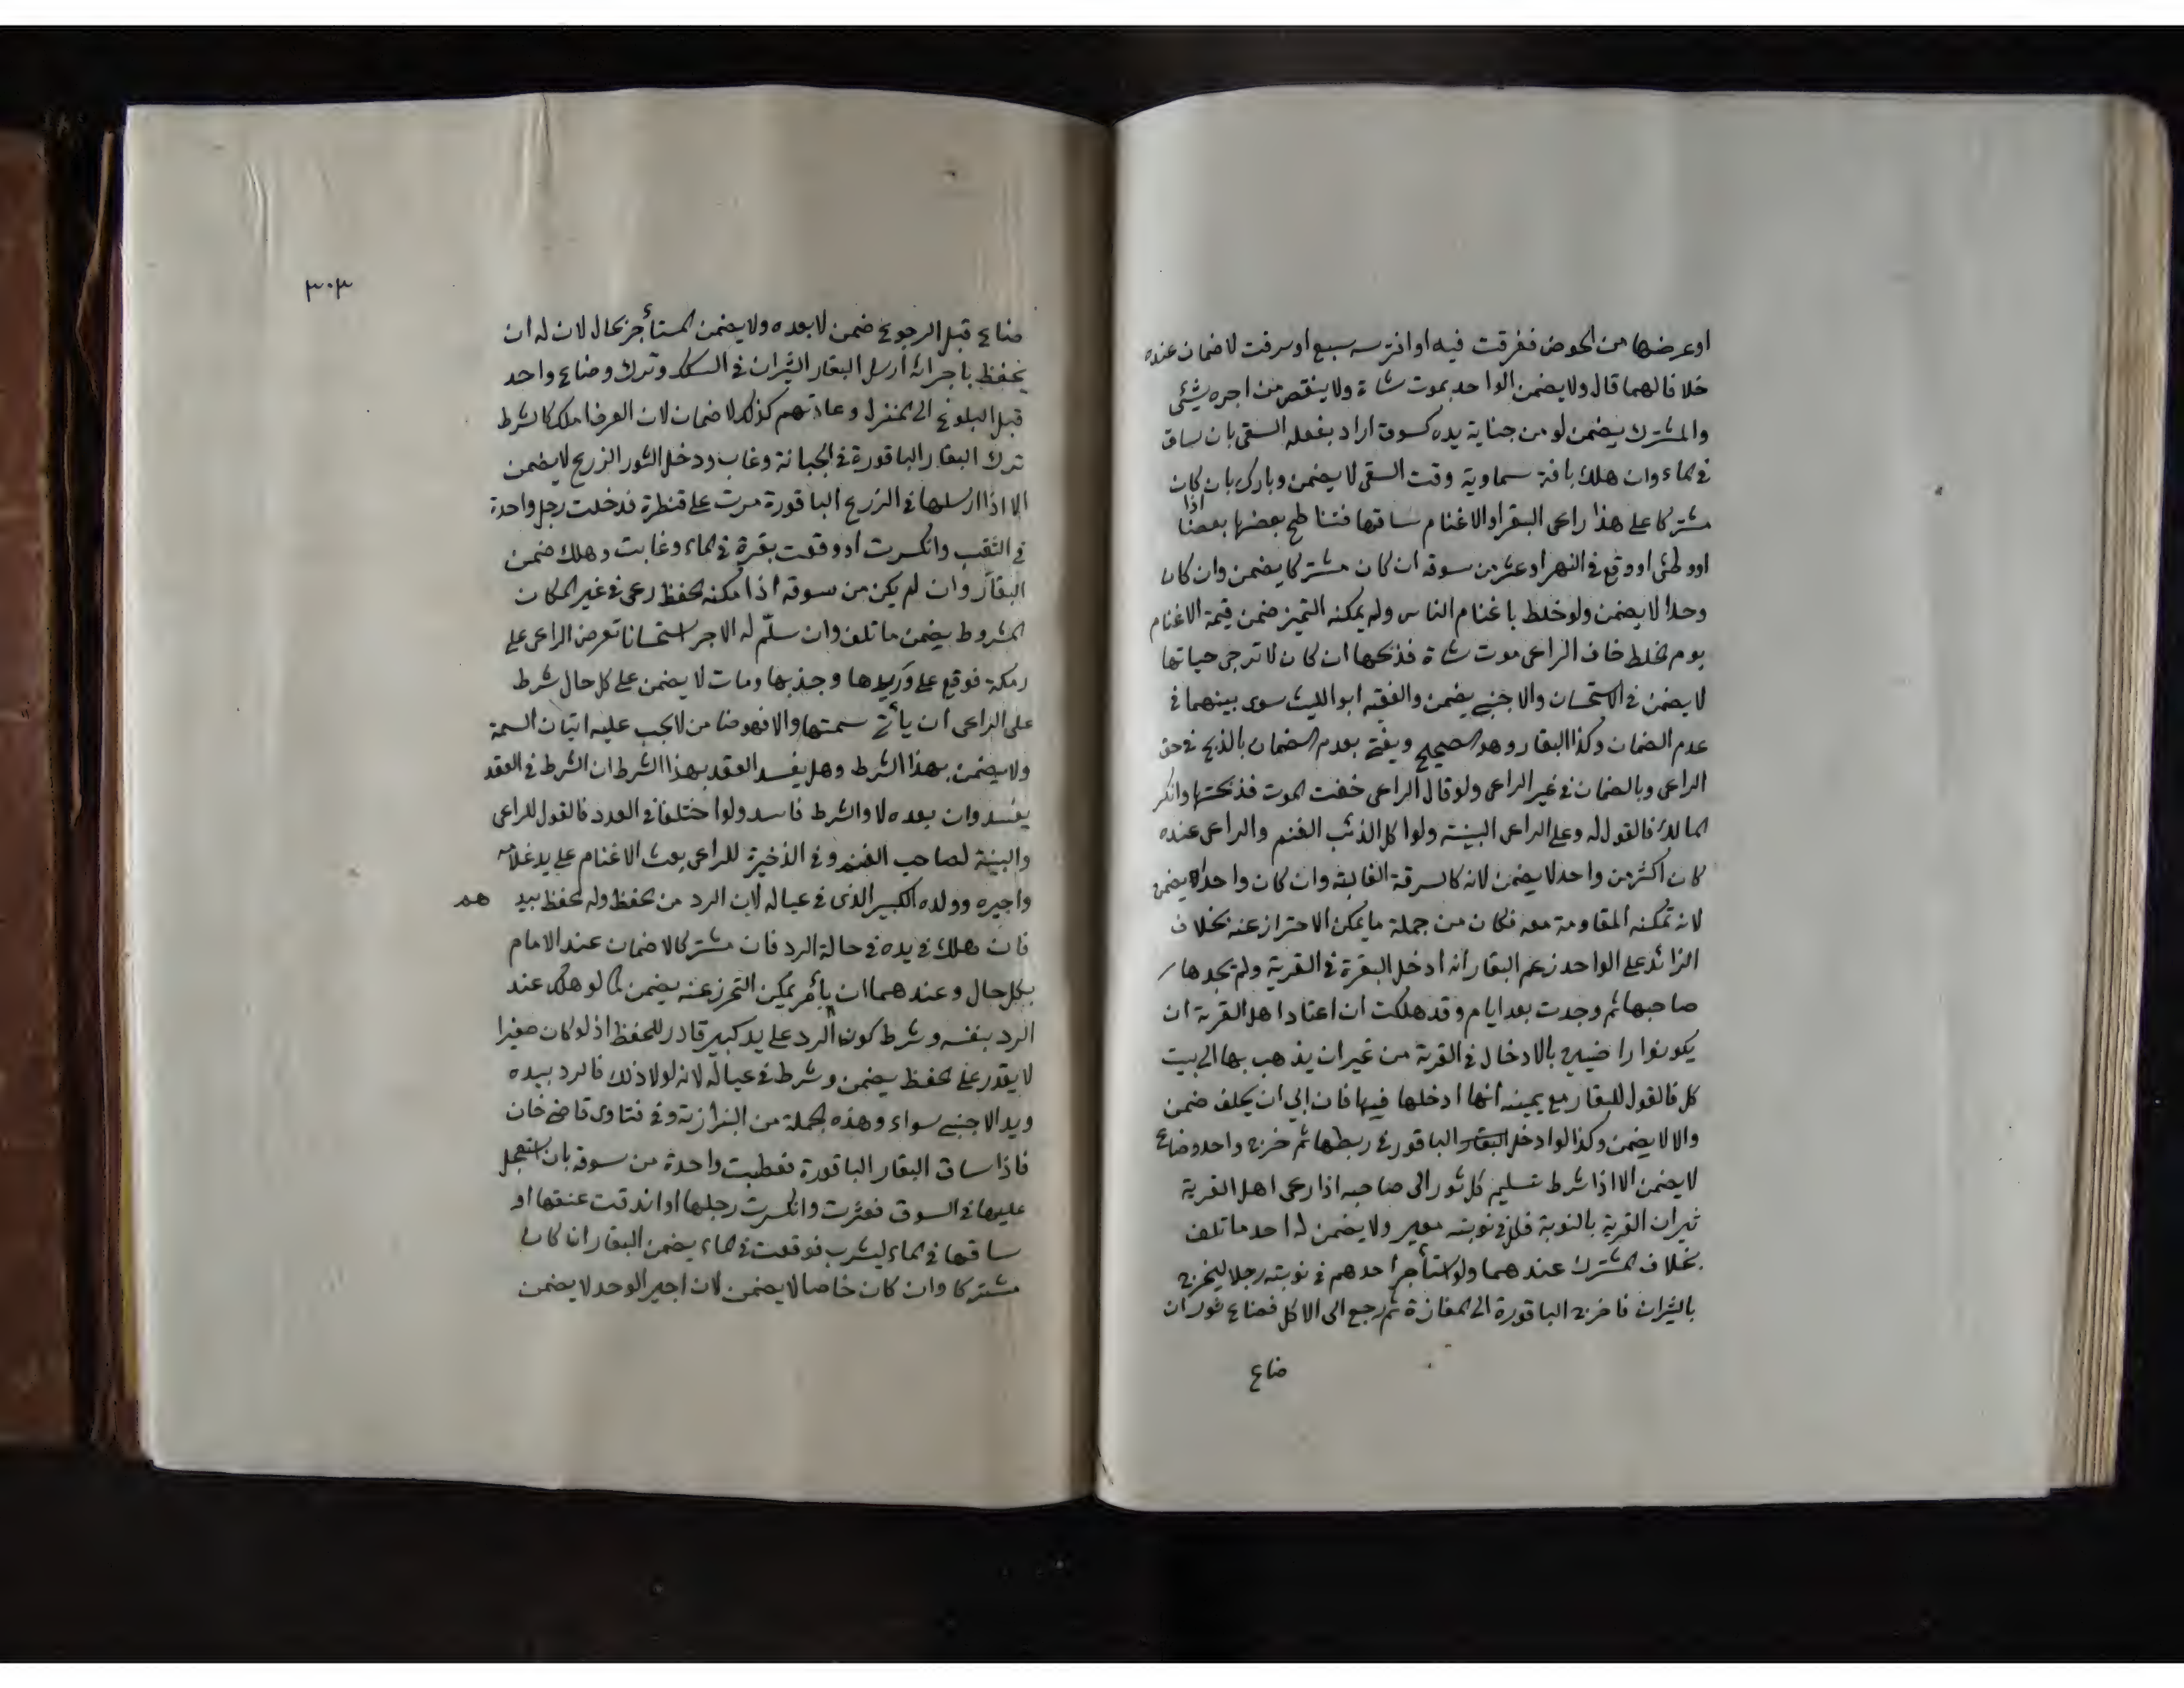 او عرضها من الحوض فغرقت فيه او افترسه سبع او سرقت لا ضمان عنده
خلافا لهما قال ولا يضمن الواحد بموت شاة ولا ينقص من اجره شيئ
والمشترك يضمن لو من جناية يده كسوق اراد بفعله السقى بان ساق
فى الماء وان هلك بافة سماوية وقت السقى لا يضمن وبارك بان كان
مشتركا على هذا راعى البقر او الاغنام اذا ساقها فتناطح بعضها بعضا
او وطئ او وقع فى النهر او عثر من سوقه ان كان مشتركا يضمن وان كان
وحدا لا يضمن ولو خلط باغنام الناس ولم يمكنه التميز ضمن قيمة الاغنام
يوم الخلط خاف الراعى موت شاة فذبحها ان كان لا ترجى حياتها
لا يضمن فى الاستحسان والاجنبى يضمن والفقيه ابو الليث سوى بينهما فى
عدم الضمان وكذا البقار وهو الصحيح ويفتى بعدم الضمان بالذبح فى حق
الراعى وبالضمان فى غير الراعى ولو قال الراعى خفت الموت فذبحتها وانكر
المالك فالقول له وعلى الراعى البينة ولو اكل الذئب الغنم والراعى عنده
كان اكثر من واحد لا يضمن لانه كالسرقة الغالبة وان كان واحدا يضمن
لانه تمكنه المقاومة معه فكان من جملة ما يمكن الاحتراز عنه بخلاف
الزائد على الواحد زعم البقار انه ادخل البقرة فى القرية ولم يجدها
صاحبها ثم وجدت بعد ايام وقد هلكت ان اعتاد اهل القرية ان
يكونوا راضيين بالادخال فى القرية من غير ان يذهب بها الى بيت
كل فالقول للبقار مع يمينه انها ادخلها فيها فان ابى ان يحلف ضمن
والا لا يضمن وكذا لو ادخل البقار الباقور فى ربطها ثم خرج واحد وضاع
لا يضمن الا اذا شرط تسليم كل ثور الى صاحبه اذا رعى اهل القرية
ثيران القرية بالنوبة فكل فى نوبته معير ولا يضمن له احد ما تلف
بخلاف المشترك عندهما ولو استأجر احدهم فى نوبته رجلا ليخرج
بالثيران فاخرج الباقورة الى المفازة ثم رجع الى الاكل فضاع ثور ان
ضاع
٣٠٣
ضاع قبل الرجوع ضمن لا بعده ولا يضمن المستأجر بحال لان له ان
يحفظ باجرائه ارسل البقار الثيران فى السكك وترك وضاع واحد
قبل البلوغ الى المنزل وعادتهم كذلك لا ضمان لان العرف املك كالشرط
ترك البقار الباقورة فى الجبانة وغاب ودخل الثور الزرع لا يضمن
الا اذا ارسلها فى الزرع الباقورة مرت على قنطرة فدخلت رجل واحدة
فى الثقب وانكسرت او وقعت بقرة فى الماء وغابت وهلك ضمن
البقار وان لم يكن من سوقه اذا امكنه الحفظ رعى فى غير المكان
المشروط يضمن ما تلف وان سلم له الاجر استحسانا تعرض الراعى على
رمكة فوقع على وريدها وجذبها ومات لا يضمن على كل حال شرط
على الراعى ان يأتى سمتها والا فهو ضامن لا يجب عليه اتيان السمة
ولا يضمن بهذا الشرط وهل يفسد العقد بهذا الشرط ان الشرط فى العقد
يفسد وان بعده لا والشرط فاسد ولو اختلفا فى العدد فالقول للراعى
والبينة لصاحب الغنم وفى الذخيرة للراعى بعث الاغنام على يد غلامه
واجيره وولده الكبير الذى فى عياله لان الرد من الحفظ وله الحفظ بيد هم
فان هلك فى يده فى حالة الرد فان مشتركا لا ضمان عند الامام
بكل حال وعندهما ان بأمر يمكن التحرز عنه يضمن كما لو هلك عند
الرد بنفسه وشرط كون الرد على يد كبير قادر للحفظ اذ لو كان صغيرا
لا يقدر على الحفظ يضمن وشرط فى عياله لانه لولا ذلك فالرد بيده
ويد الاجنبى سواء وهذه الجملة من البزازية وفى فتاوى قاضى خان
فاذا ساق البقار الباقورة فعطبت واحدة من سوقه بان استعجل
عليها فى السوق فعثرت وانكسرت رجلها او اندقت عنقها او
ساقها فى الماء ليشرب فوقعت فى الماء يضمن البقار ان كان
مشتركا وان كان خاصا لا يضمن لان اجير الوحد لا يضمن